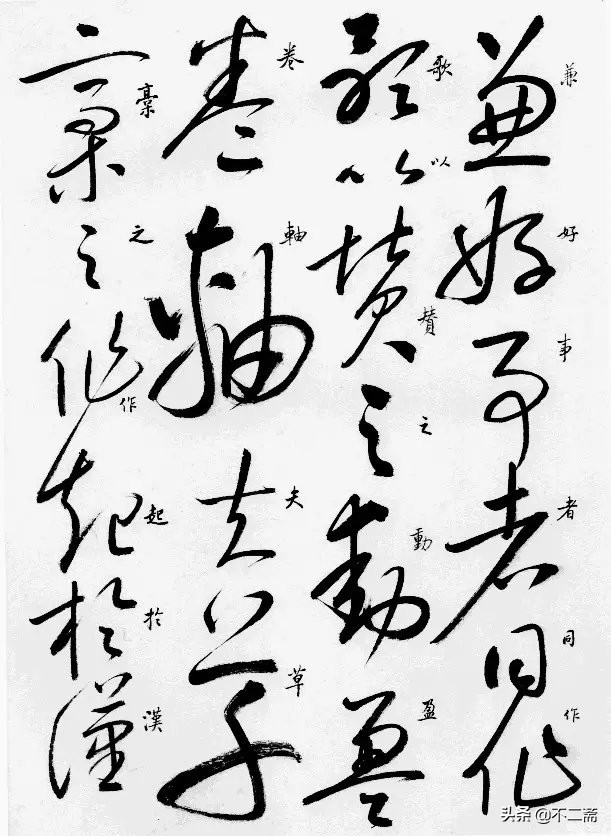 兼好事者同作
歌以贊之動盈
卷軸夫草
稾之作起於漢
头条 @不二斋